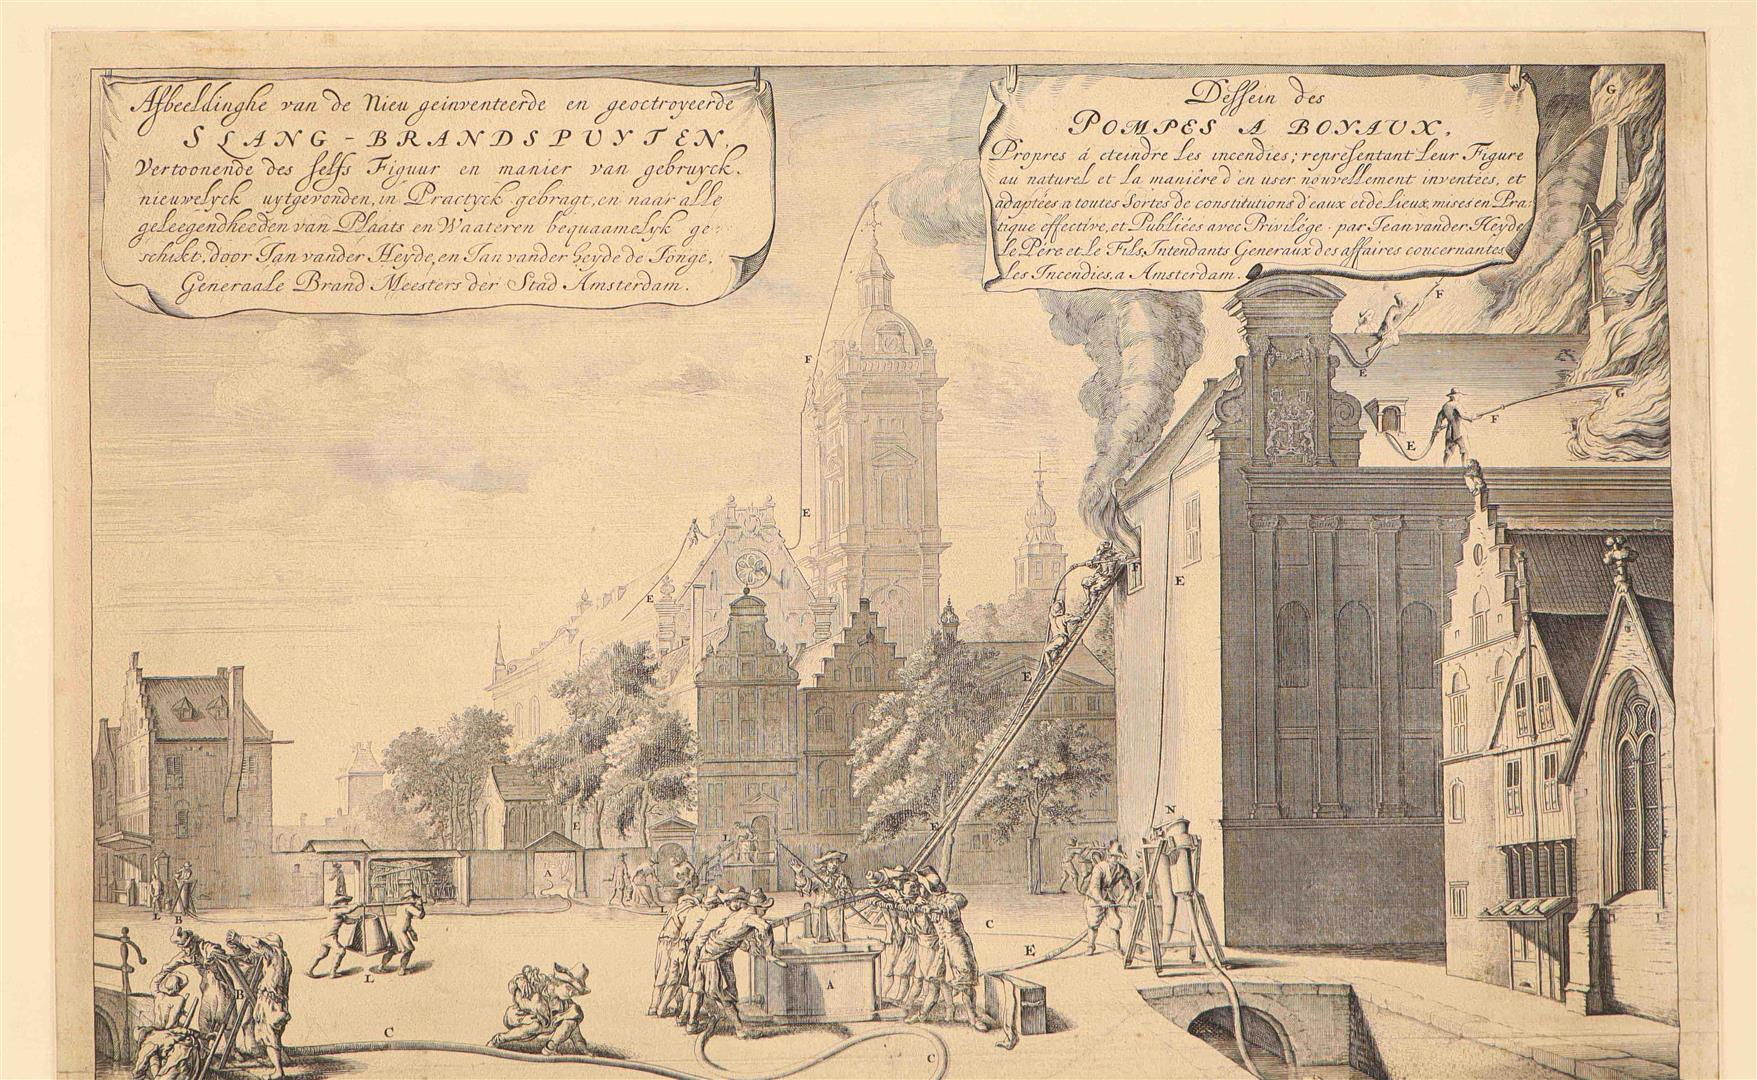 Afbeeldinghe van de Nieu geinventeerde en geoctroyeerde
SLANG-BRANDSPUYTEN,
Vertoonende des selfs Figuur en manier van gebruyck.
nieuwelyck uytgevonden, in Practyck gebragt, en naar alle
geleegendheeden van Plaats en Waateren bequaamelyk ge=
schikt. door Jan vander Heyde, en Jan vander heyde de Jonge,
Generaale Brand Meesters der Stad Amsterdam.
Dessein des
POMPES A BOYAUX,
Propres á eteindre les incendies; representant leur Figure
au naturel et la maniére d'en user nouvellement inventées, et
adaptées a toutes sortes de constitutions d'eaux et de Lieux, mises en Pra=
tique effective, et Publiées avec Privilége. par Jean vander Heyde
le Pére et le Fils, Intendants Generaux des affaires concernantes
les Incendies, a Amsterdam.
G
F
F
E
G
F
E
E
E
F
E
E
N
E
E
L
A
L
B
L
C
E
L
A
B
C
C